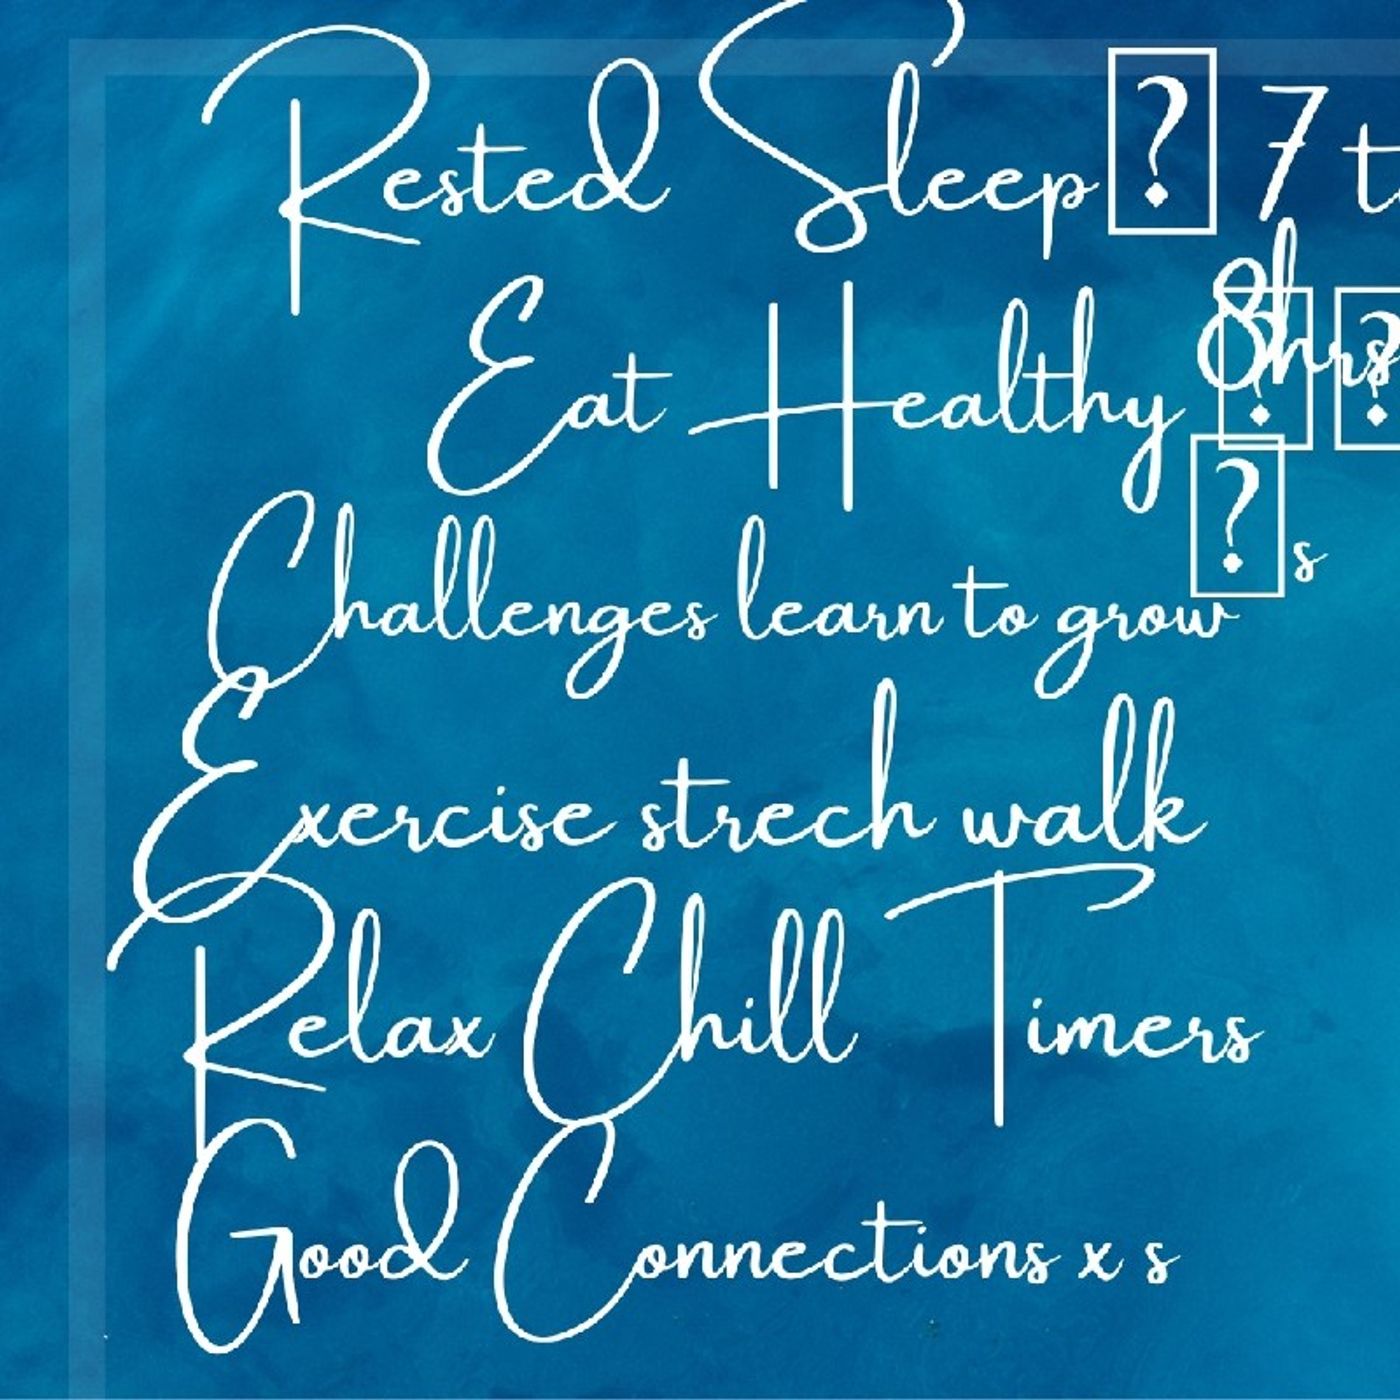 Rested Sleep 7 to
8hrs
Eat Healthy
s
Challenges learn to grow
Exercise strech walk
Relax Chill Timers
Good Connections x s